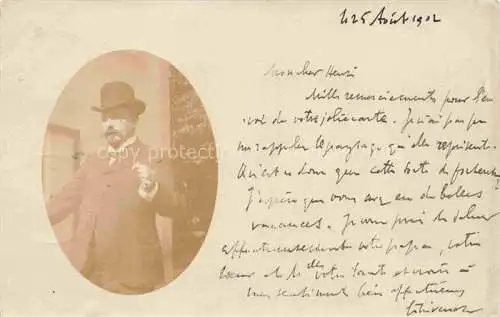 le 25 Août 1902
Mon cher Henri
Mille remerciements pour l'en
voi de votre jolie carte. Je n'ai pas pu
me rappeler le paysage qu'elle représente.
Qu'est-ce donc que cette
J'espère que vous avez eu de belles
vacances. Je vous prie de saluer
affectueusement votre papa, votre
sœur et votre tante et croire à
mes sentiments bien affectueux
Copyright protected